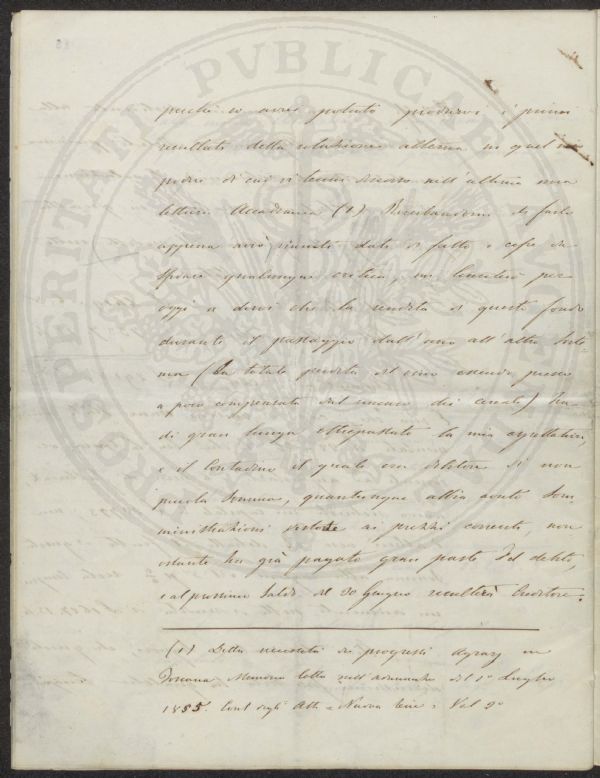 perchè io avrei potuto produrvi i primi
resultati della rotazione alterna in quel mi
podere di cui vi tenni discorso nell'ultima mia
lettura Accademica (1). Riserbandomi di farlo
appena avrò riunito dati di fatto e cifre da
sfidare qualunque critica, mi limiterò per
oggi a dirvi che la rendita di questo fondo
durante il passaggio dall'uno all'altro siste-
ma (la totale perdita del vino essendo presso
a poco compensata dal rincaro dei cereali) ha
di gran lunga oltrepassato la mia aspettativa,
e il Contadino il quale era debitore di non
piccola somma, quantunque abbia avuto som
ministrazioni ai prezzi correnti, non
ostante ha già pagato gran parte del debito,
e al prossimo saldo del 30 Giugno resulterà Creditore.
(1) Della necessità dei progressi Agrarj in
Toscana Memoria letta nell'adunanza del 1° Luglio
1855. Cont. degli Atti - Nuova Serie - Vol 2°
PROSPERITATI PVBLICAE